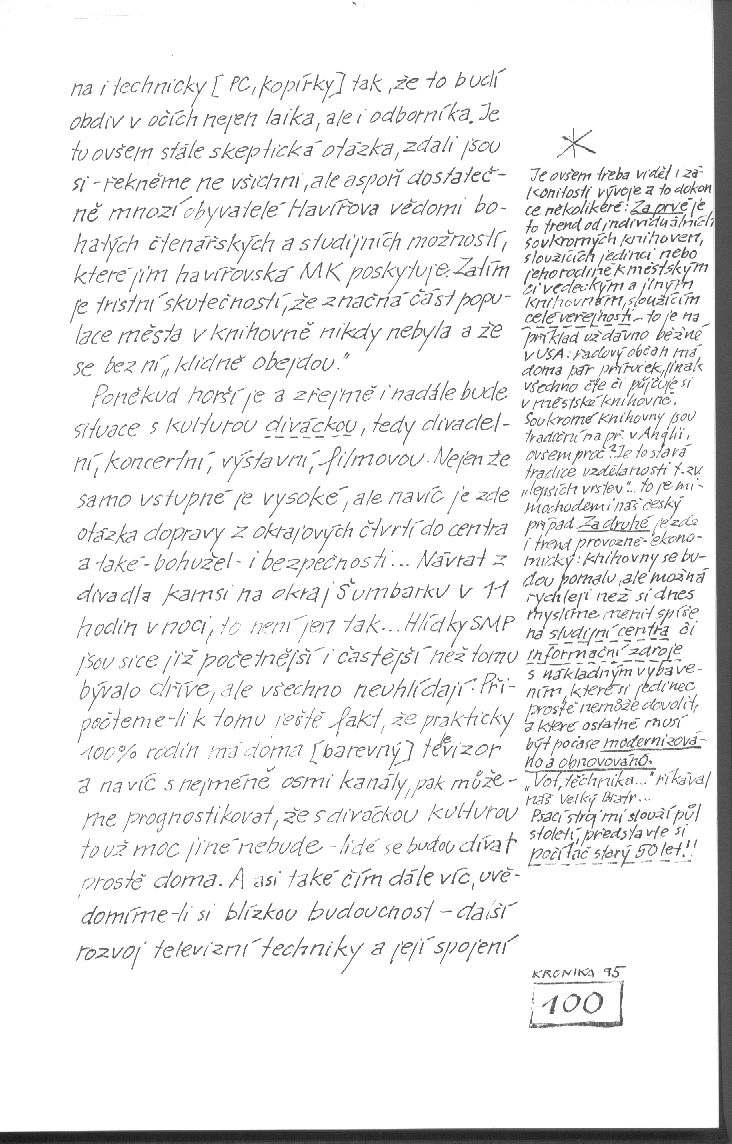 na i technicky [ PC, kopírky] tak, že to budí
obdiv v očích nejen laika, ale i odborníka. Je
tu ovšem stále skeptická otázka, zdali jsou
si - řekněme ne všichni, ale aspoň dostateč-
ně mnozí obyvatelé Havířova vědomi bo-
hatých čtenářských a studijních možností,
které jim havířovská MK poskytuje. Zatím
je tristní skutečností, že značná část popu-
lace města v knihovně nikdy nebyla a že
se bez ní „klidně obejdou."
Poněkud horší je a zřejmě i nadále bude
situace s kulturou diváckou, tedy divadel-
ní, koncertní, výstavní, filmovou. Nejen že
samo vstupné je vysoké, ale navíc je zde
otázka dopravy z okrajových čtvrtí do centra
a také - bohužel - i bezpečnosti... Návrat z
divadla kamsi na okraj Šumbarku v 11
hodin v noci, to není jen tak... Hlídky SMP
jsou sice již početnější i častější než tomu
bývalo dříve, ale všechno neuhlídají. Při-
počteme-li k tomu ještě fakt, že prakticky
100% rodin má doma [barevný] televizor
a navíc s nejméně osmi kanály, pak může-
me prognostikovat, že s diváckou kulturou
to už moc jiné nebude - lidé se budou dívat
prostě doma. A asi také čím dále víc, uvě-
domíme-li si blízkou budoucnost - další
rozvoj televizní techniky a její spojení
Je ovšem třeba vidět i zá-
konitosti vývoje a to dokon
ce několikeré: Za prvé je
to trend od individuálních
soukromých knihoven,
sloužících jedinci nebo
jeho rodině k městským
či vědeckým a jiným
knihovnám, sloužícím
celé veřejnosti - to je na
příklad už dávno běžné
v USA: řadový občan má
doma pár příruček, jinak
všechno čte či půjčuje si
v městské knihovně.
Soukromé knihovny jsou
tradiční na př. v Anglii,
ovšem proč? Je to stará
tradice vzdělanosti t.zv.
„lepších vrstev"... to je mi-
mochodem i náš český
případ. Za druhé je zde
i trend provozně-ekono-
mický: knihovny se bu-
dou pomalu, ale možná
rychleji než si dnes
myslíme měnit spíše
na studijní centra či
informační zdroje
s nákladným vybave-
ním, které si jedinec
prostě nemůže dovolit,
a které ostatně musí
být počase modernizová-
no a obnovováno.
„Vot, těchnika..." říkával
náš Velký Bratr...
Psací stroj mi slouží půl
století, představte si
počítač starý 50 let!!
KRONIKA 95
100